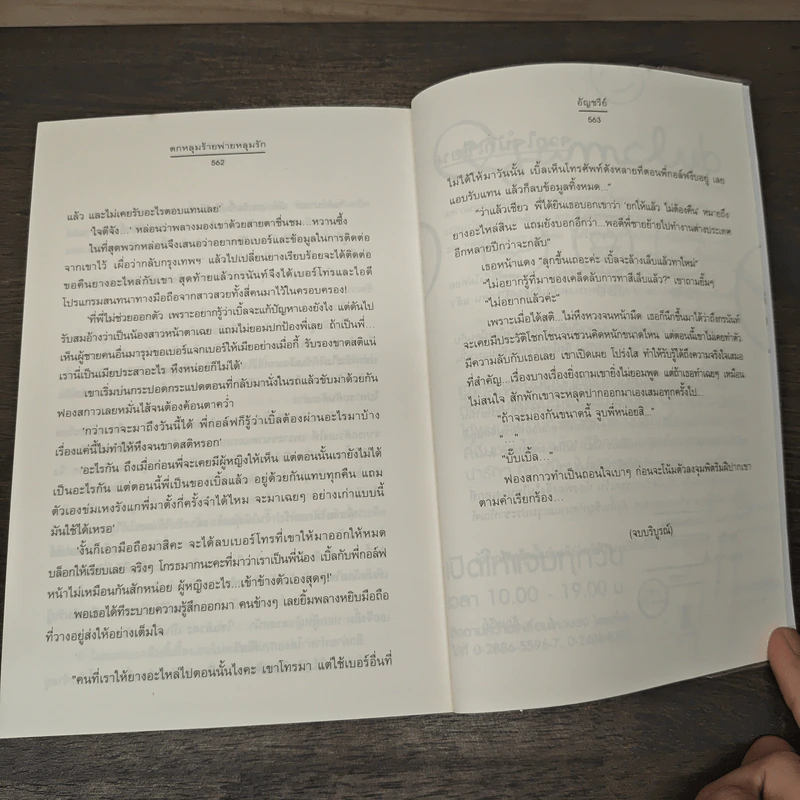 ตกหลุมร้ายพ่ายหลุมรัก
562
แล้ว และไม่เคยรับอะไรตอบแทนเลย'
'ใจดีจัง...' หล่อนว่าพลางมองเขาด้วยสายตาชื่นชม...หวานซึ้ง
ในที่สุดพวกหล่อนจึงเสนอว่าอยากขอเบอร์และข้อมูลในการติดต่อ
จากเขาไว้ เผื่อว่ากลับกรุงเทพฯ แล้วไปเปลี่ยนยางเรียบร้อยจะได้ติดต่อ
ขอคืนยางอะไหล่กับเขา สุดท้ายแล้วกรนันท์จึงได้เบอร์โทรและไอดี
โปรแกรมสนทนาทางมือถือจากสาวสวยทั้งสี่คนมาไว้ในครอบครอง!
'ที่พี่ไม่ช่วยออกตัว เพราะอยากรู้ว่าเบิ้ลจะแก้ปัญหาเองยังไง แต่ดันไป
รับสมอ้างว่าเป็นน้องสาวหน้าตาเฉย แถมไม่ยอมปกป้องพี่เลย ถ้าเป็นพี่...
เห็นผู้ชายคนอื่นมารุมขอเบอร์แจกเบอร์ให้เมียอย่างเมื่อกี้ รับรองขาดสติแน่
เรานี่เป็นเมียประสาอะไร หึงหน่อยก็ไม่ได้'
เขาเริ่มบ่นกระปอดกระแปดตอนที่กลับมานั่งในรถแล้วขับมาด้วยกัน
ฟองสกาวเลยหมั่นไส้จนต้องค้อนตาคว่ำ
'กว่าเราจะมาถึงวันนี้ได้ พี่กอล์ฟก็รู้ว่าเบิ้ลต้องผ่านอะไรมาบ้าง
เรื่องแค่นี้ไม่ทำให้หึงจนขาดสติหรอก'
'อะไรกัน ถึงเมื่อก่อนพี่จะเคยมีผู้หญิงให้เห็น แต่ตอนนั้นเรายังไม่ได้
เป็นอะไรกัน แต่ตอนนี้พี่เป็นของเบิ้ลแล้ว อยู่ด้วยกันแทบทุกคืน แถม
ตัวเองข่มเหงรังแกพี่มาตั้งกี่ครั้งจำได้ไหม จะมาเฉยๆ อย่างเก่าแบบนี้
มันใช้ได้เหรอ'
'งั้นก็เอามือถือมาสิคะ จะได้ลบเบอร์โทรที่เขาให้มาออกให้หมด
บล็อกให้เรียบเลย จริงๆ โกรธมากนะคะที่มาว่าเราเป็นพี่น้อง เบิ้ลกับพี่กอล์ฟ
หน้าไม่เหมือนกันสักหน่อย ผู้หญิงอะไร...เข้าข้างตัวเองสุดๆ!'
พอเธอได้ทีระบายความรู้สึกออกมา คนข้างๆ เลยยิ้มพลางหยิบมือถือ
ที่วางอยู่ส่งให้อย่างเต็มใจ
"คนที่เราให้ยางอะไหล่ไปตอนนั้นไงคะ เขาโทรมา แต่ใช้เบอร์อื่นที่
อัญชรีย์
563
ไม่ได้ให้มาวันนั้น เบิ้ลเห็นโทรศัพท์ดังหลายทีตอนพี่กอล์ฟงีบอยู่ เลย
แอบรับแทน แล้วก็ลบข้อมูลทิ้งหมด..."
"ว่าแล้วเชียว พี่ได้ยินเธอบอกเขาว่า 'ยกให้แล้ว ไม่ต้องคืน' หมายถึง
ยางอะไหล่สินะ แถมยังบอกอีกว่า...พอดีพี่ชายย้ายไปทำงานต่างประเทศ
อีกหลายปีกว่าจะกลับ"
เธอหน้าแดง "ลุกขึ้นเถอะค่ะ เบิ้ลจะล้างเล็บแล้วทาใหม่"
"ไม่อยากรู้ที่มาของเคล็ดลับการทาสีเล็บแล้ว?" เขาถามยิ้มๆ
"ไม่อยากแล้วค่ะ"
เพราะเมื่อได้สติ...ไม่หึงหวงจนหน้ามืด เธอก็นึกขึ้นมาได้ว่าถึงกรนันท์
จะเคยมีประวัติโชกโชนจนชวนคิดหนักขนาดไหน แต่ตอนนี้เขาไม่เคยทำตัว
มีความลับกับเธอเลย เขาเปิดเผย โปร่งใส ทำให้รับรู้ได้ถึงความจริงใจเสมอ
ที่สำคัญ...เรื่องบางเรื่องยิ่งถามเขายิ่งไม่ยอมพูด แต่ถ้าเธอทำเฉยๆ เหมือน
ไม่สนใจ สักพักเขาจะหลุดปากออกมาเองเสมอทุกครั้งไป...
"ถ้าจะมองกันขนาดนี้ จูบพี่หน่อยสิ..."
"..."
"บั๊บเบิ้ล..."
ฟองสกาวทำเป็นถอนใจเบาๆ ก่อนจะโน้มตัวลงจุมพิตริมฝีปากเขา
ตามคำเรียกร้อง...
(จบบริบูรณ์)